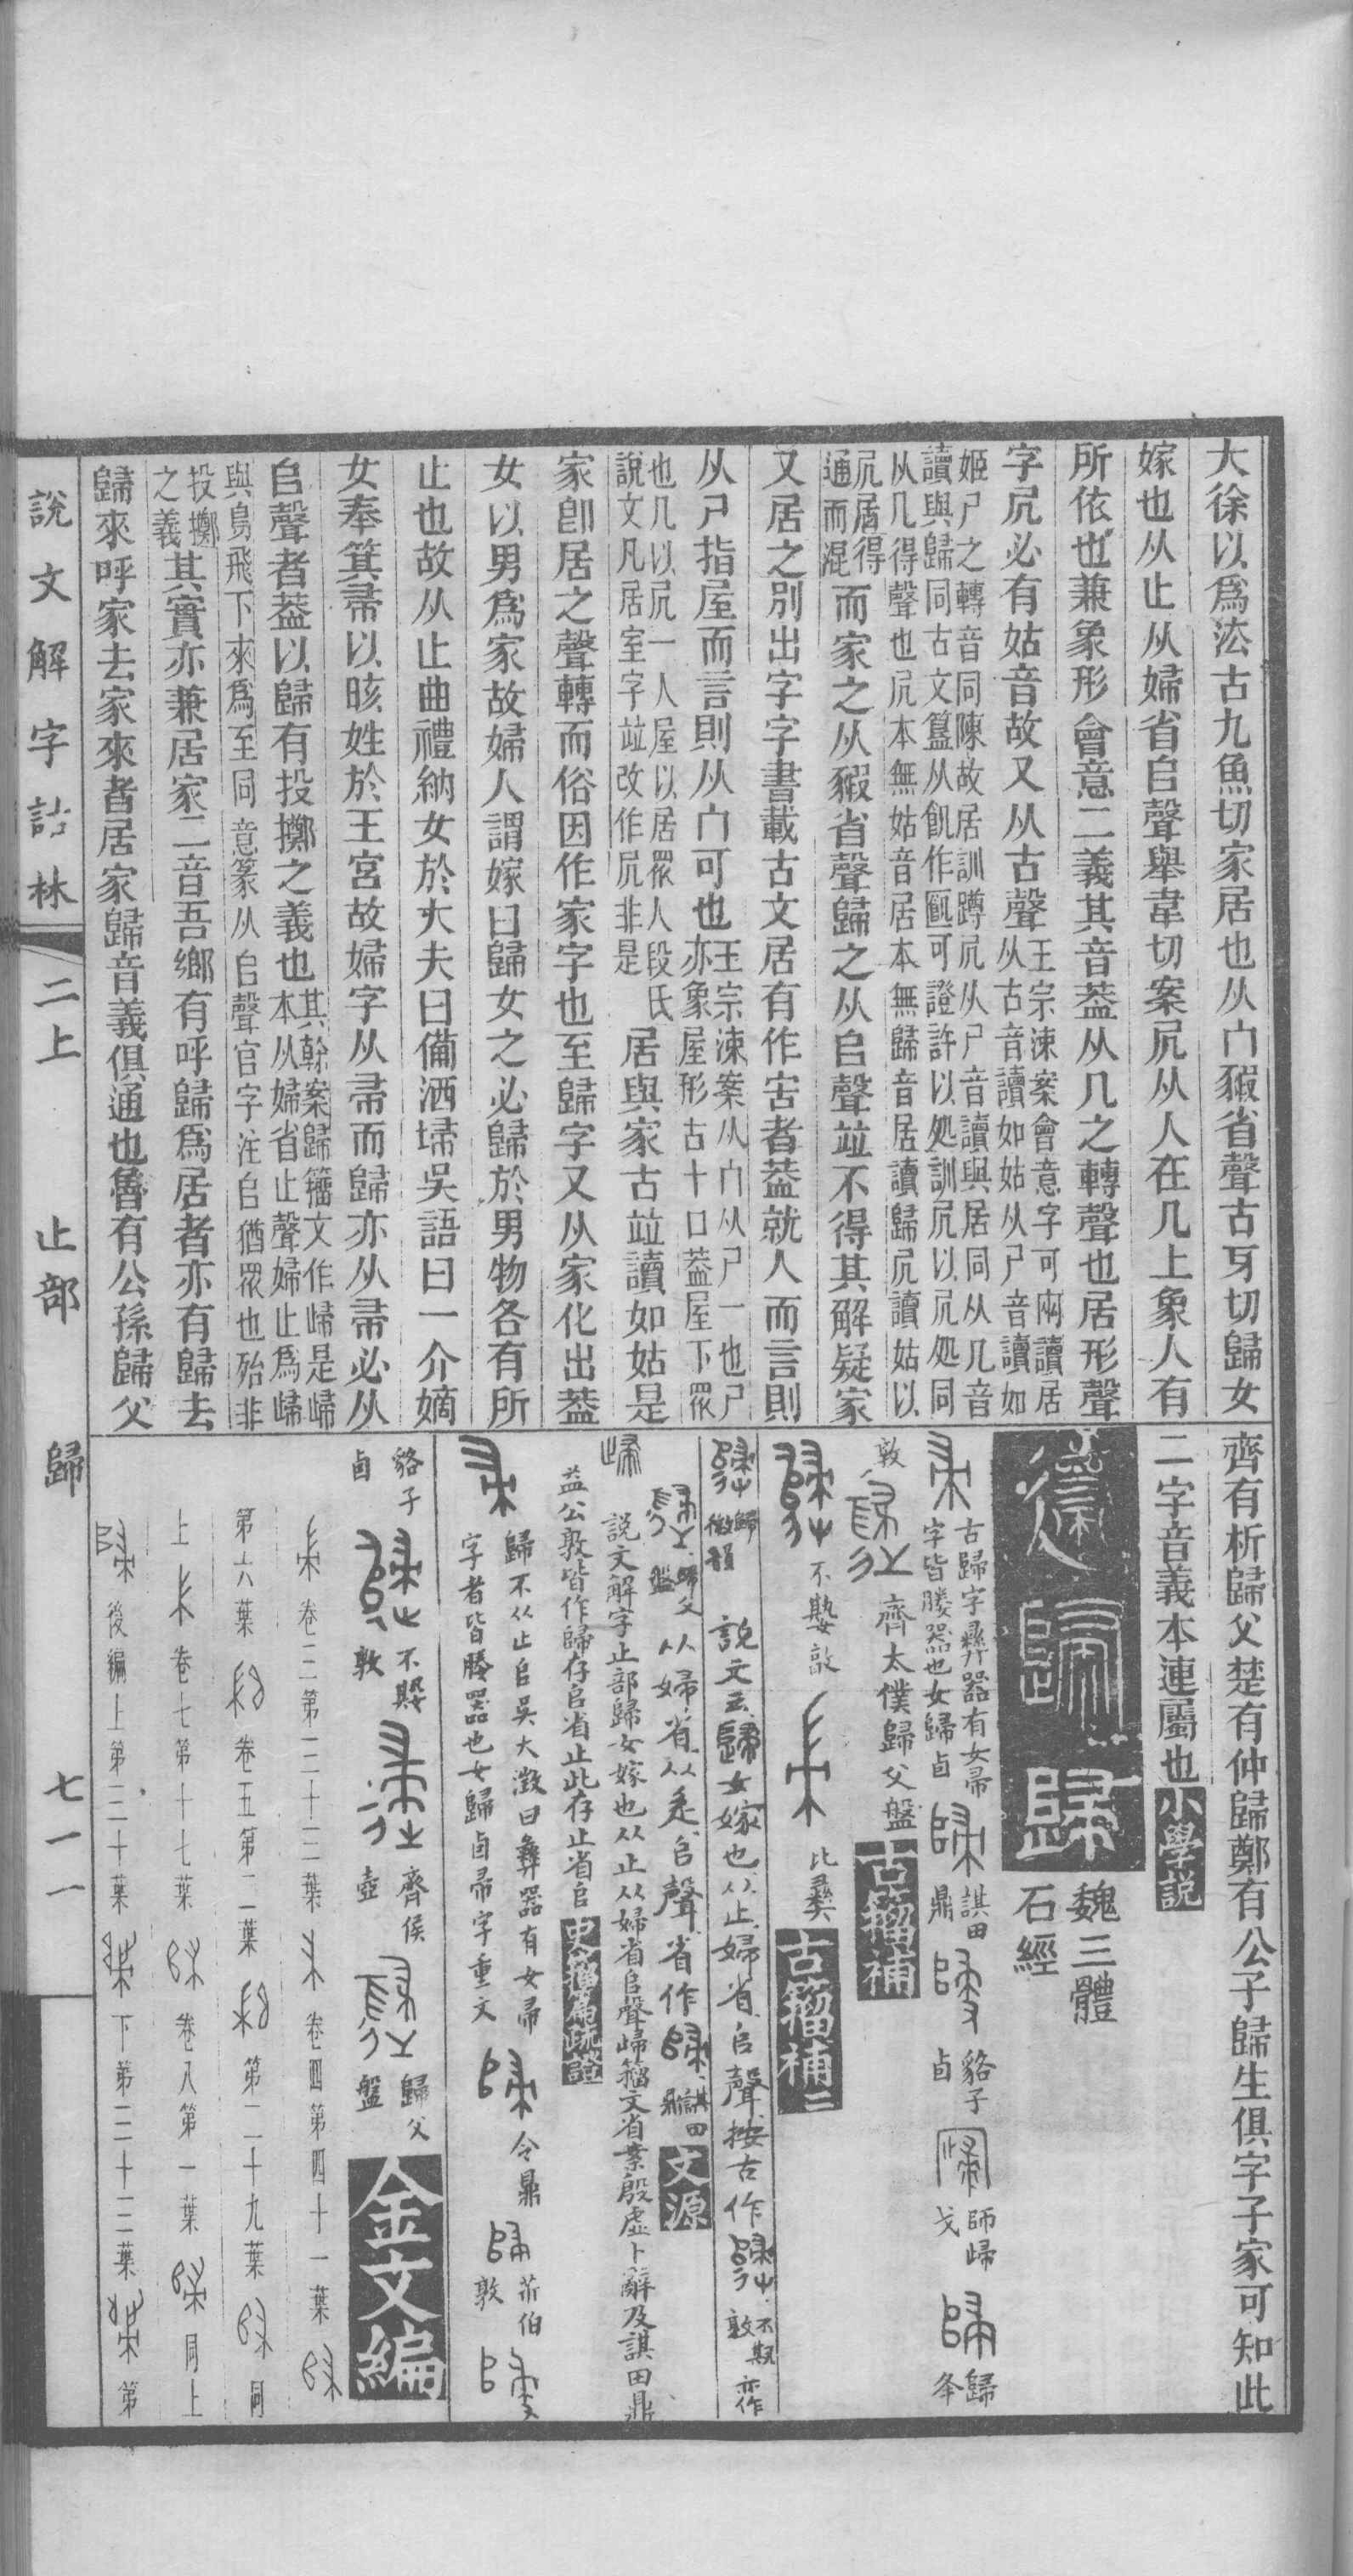 大徐以爲㳒古九魚切家居也从宀豭省聲古牙切歸女
嫁也从止从婦省𠂤聲舉韋切案凥从人在几上象人有
所依也兼象形會意二義其音葢从几之轉聲也居形聲
字凥必有姑音故又从古聲王宗涑案會意字可兩讀居
从古音讀如姑从尸音讀如
姬尸之轉音同陳故居訓蹲凥从尸音讀與居同从几音
讀與歸同古文簋从飢作匭可證許以処訓凥以凥処同
从几得聲也凥本無姑音居本無歸音居讀歸凥讀姑以
凥居得
通而混
而家之从豭省聲歸之从𠂤聲竝不得其解疑家
又居之別出字字書載古文居有作𡧮者葢就人而言則
从尸指屋而言則从宀可也王宗涑案从宀从尸一也尸
亦象屋形古十口葢屋下眾
也几以凥一人屋以居眾人段氏
說文凡居室字竝改作凥非是
居與家古竝讀如姑是
家卽居之聲轉而俗因作家字也至歸字又从家化出葢
女以男爲家故婦人謂嫁曰歸女之必歸於男物各有所
止也故从止曲禮納女於大夫曰備洒埽吳語曰一介嫡
女奉箕帚以晐姓於王宮故婦字从帚而歸亦从帚必从
𠂤聲者葢以歸有投擲之義也其幹案歸籒文作㱕是㱕
本从婦省止聲婦止爲㱕
與鳥飛下來爲至同意篆从𠂤聲官字注𠂤猶眾也殆非
投擲
之義
其實亦兼居家二音吾鄉有呼歸爲居者亦有歸去
歸來呼家去家來者居家歸音義俱通也魯有公孫歸父
齊有析歸父楚有仲歸鄭有公子歸生俱字子家可知此
二字音義本連屬也小學說
歸
魏三體
石經
古歸字彝器有女帚
字皆媵器也女歸卣
諆田
鼎
貉子
卣
師㱕
戈
歸夆
敦
齊太僕歸父盤
古籒補
不䙷敦
比彝
古籒補二
歸
微韻
說文云歸女嫁也从止婦省𠂤聲按古作
不䙷
敦
亦作
歸父
盤
从婦省从辵𠂤聲省作
諆田
鼎
文源
㱕
說文解字止部歸女嫁也从止从婦省𠂤聲㱕籒文省案殷虛卜辭及諆田鼎
益公敦皆作歸存𠂤省止此存止省𠂤
史籒篇疏證
歸不从止𠂤吳大澂曰彝器有女帚
字者皆媵器也女歸卣帚字重文
令鼎
𦫵伯
敦
貉子
卣
不䙷
敦
齊侯
壺
歸父
盤
金文編
卷三第三十三葉
卷四第四十一葉
同
第六葉
卷五第二葉
第二十九葉
同
上
卷七第十七葉
卷八第一葉
同上
後編上第三十葉
下第三十三葉
第
說文解字詁林
二上
止部
歸
七一一